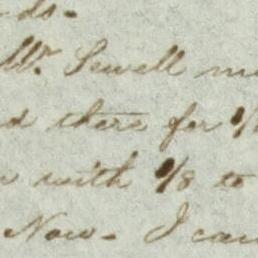 ds-
Mr. Sewell m
d there for 1/
with 1/8 to
Now- I can